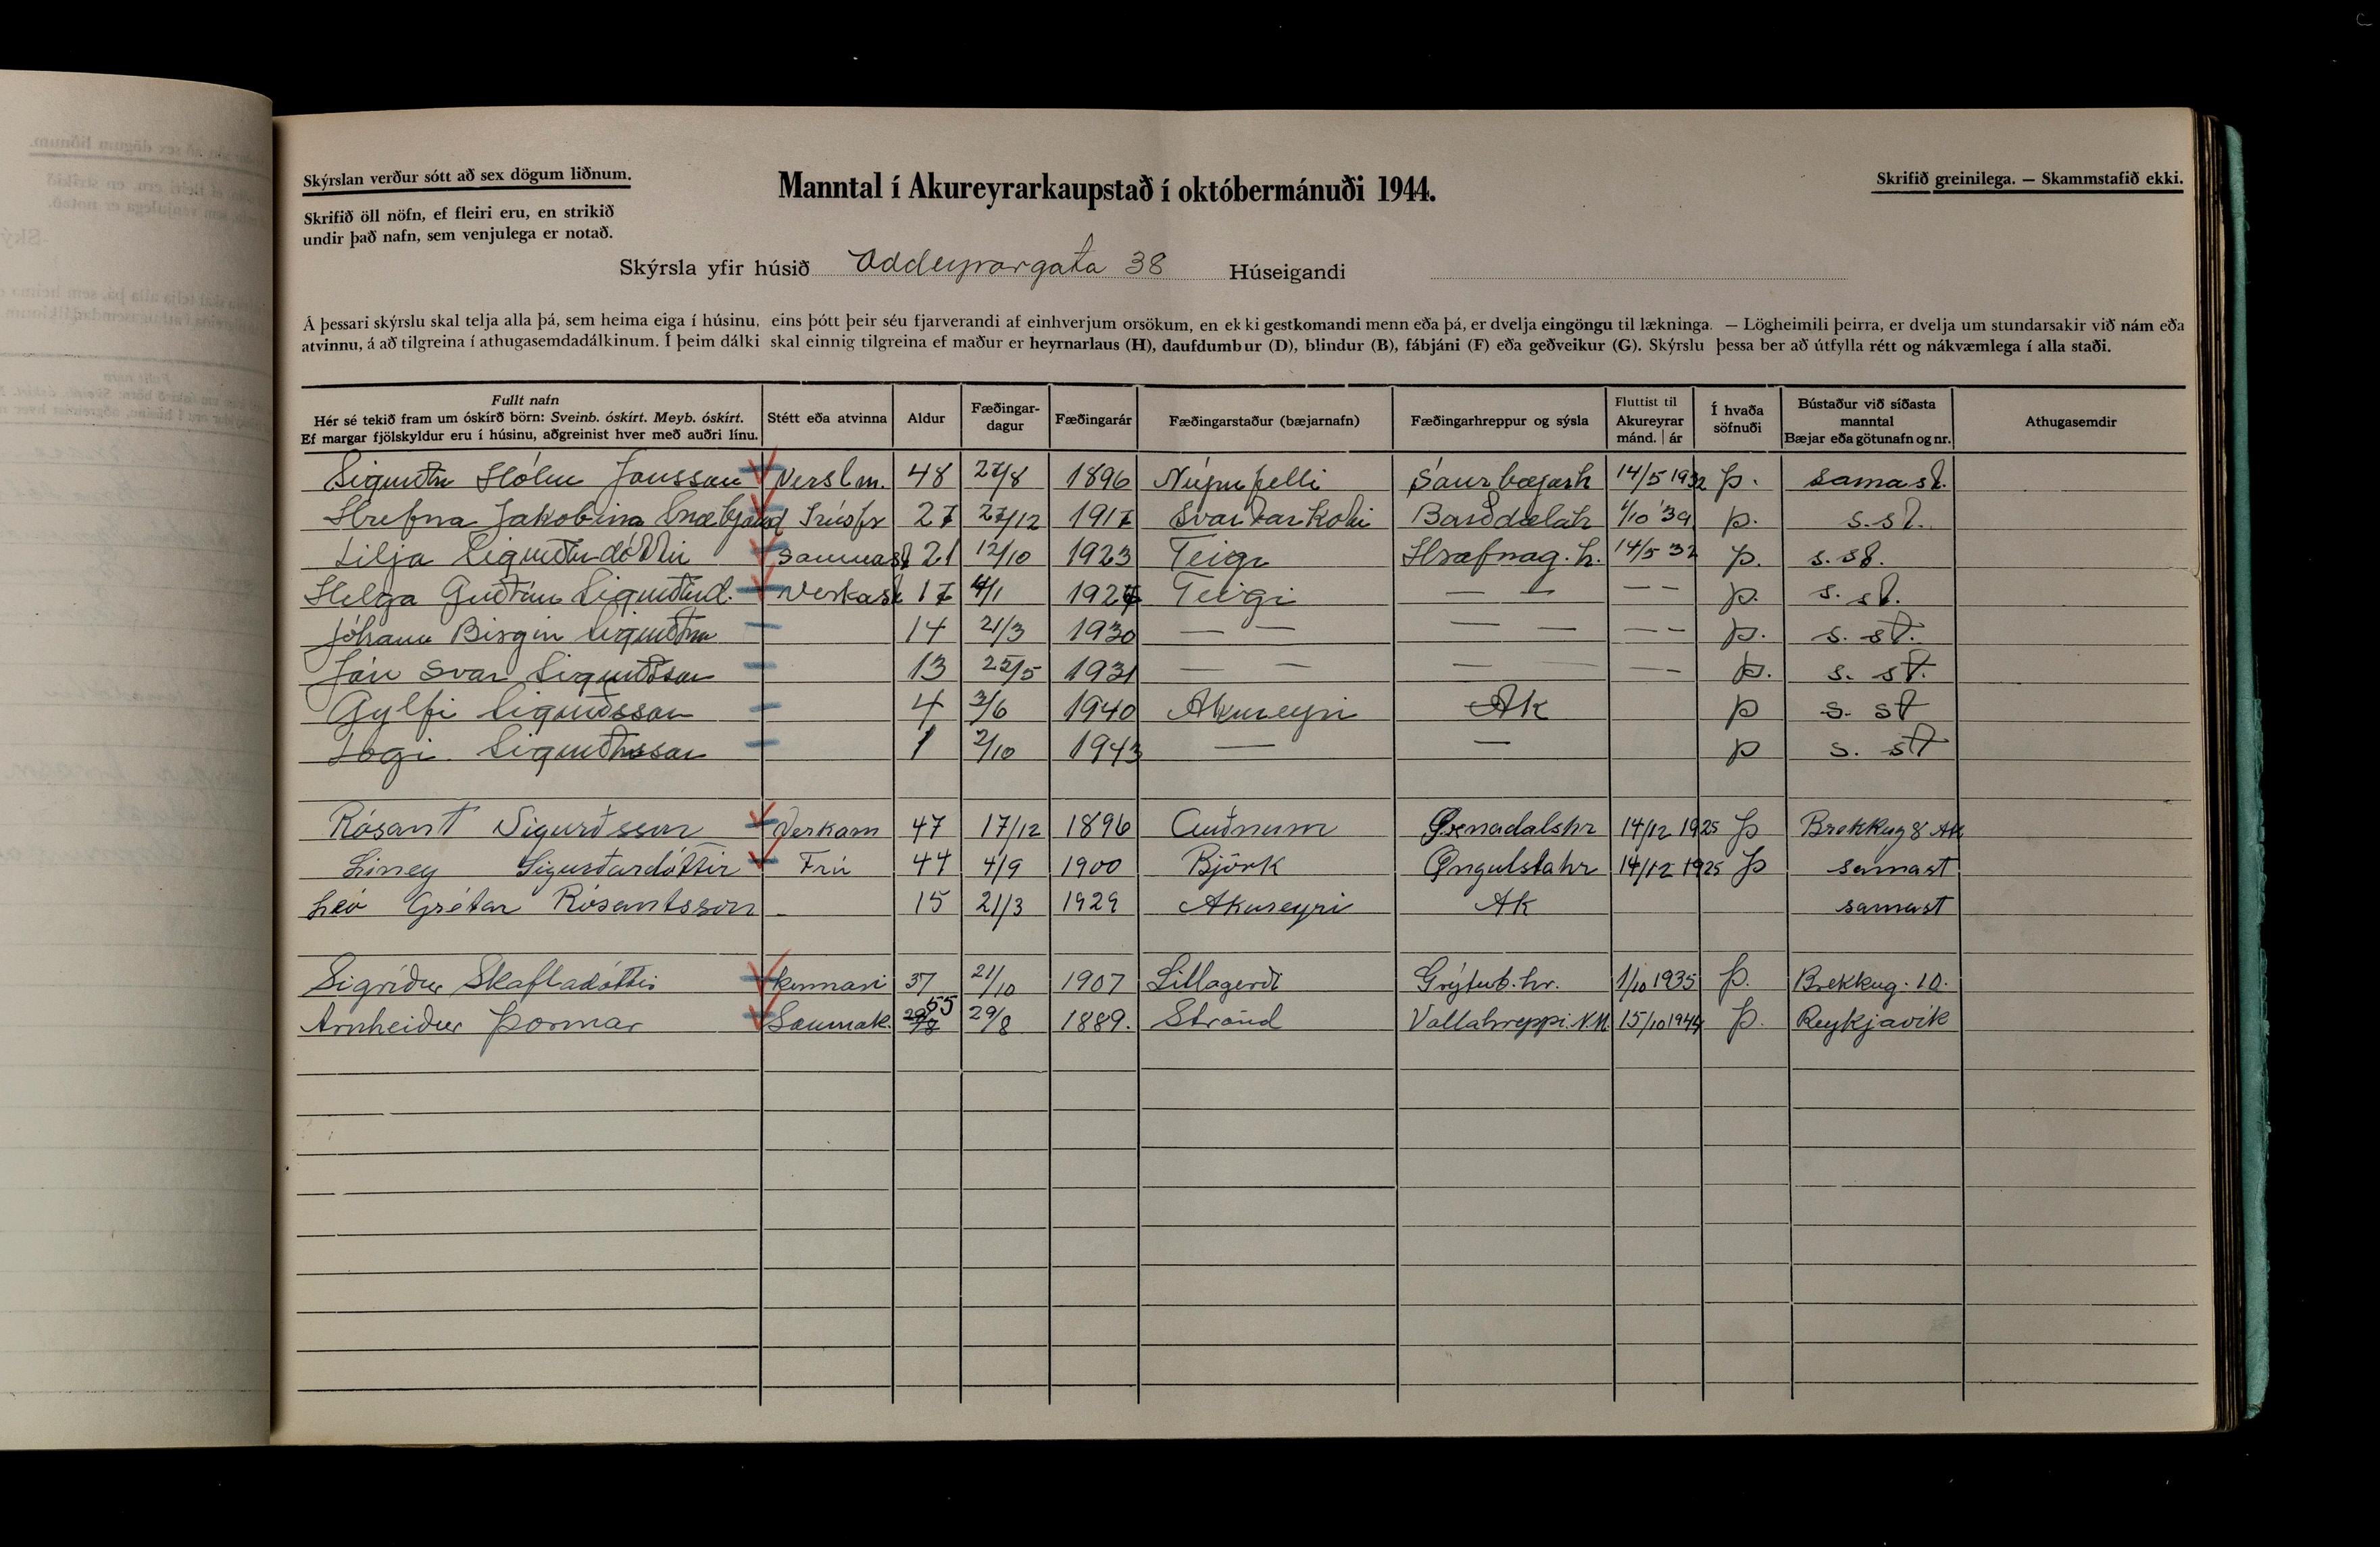 Skýrslan verður sótt að sex dögum liðnum.
Manntal í Akureyrarkaupstað í októbermánuði 1944.
Skrifið greinilega. — Skammstafið ekki.
Skrifið öll nöfn, ef fleiri eru, en strikið
undir það nafn, sem venjulega er notað.
Skýrsla yfir húsið Oddeyrargata 38 Húseigandi
Á þessari skýrslu skal telja alla þá, sem heima eiga í húsinu, eins þótt þeir séu fjarverandi af einhverjum orsökum, en ekki gestkomandi menn eða þá, er dvelja eingöngu til lækninga. — Lögheimili þeirra, er dvelja um stundarsakir við nám eða
atvinnu, á að tilgreina í athugasemdadálkinum. Í þeim dálki skal einnig tilgreina ef maður er heyrnarlaus (H), daufdumbur (D), blindur (B), fábjáni (F) eða geðveikur (G). Skýrslu þessa ber að útfylla rétt og nákvæmlega í alla staði.
Fullt nafn
Hér sé tekið fram um óskírð börn: Sveinb. óskírt. Meyb. óskírt.
Ef margar fjölskyldur eru í húsinu, aðgreinist hver með auðri línu.
Stétt eða atvinna
Aldur
Fæðingar-
dagur
Fæðingarár
Fæðingarstaður (bæjarnafn)
Fæðingarhreppur og sýsla
Fluttist til
Akureyrar
mánd. | ár
Í hvaða
söfnuði
Bústaður við síðasta
manntal
Bæjar eða götunafn og nr.
Athugasemdir
Sigurður Hólm Jónsson Verslm. 48 27/8 1896 Núpufelli Saurbæjarh 14/5 1932 Þ. sama st.
Hrefna Jakobína Snæbjörnsd Húsfr 27 27/12 1917 Svartárkoti Bárðdælah 1/10 '39 þ. s. st.
Lilja Sigurðardóttir saumast 21 12/10 1923 Teigi Hrafnag. h. 14/5 32 þ. s. st.
Helga Guðrún Sigurðard. Verkast 17 4/1 1927 Teigi — — — — þ. s. st.
Jóhann Birgir Sigurðsson 14 21/3 1930 — — — — — — þ. s. st.
Jón Svan Sigurðsson 13 25/5 1931 — — — — — — þ. s. st.
Gylfi Sigurðsson 4 3/6 1940 Akureyri Ak þ s. st
Logi Sigurðsson 1 2/10 1943 — — þ s. st
Rósant Sigurðsson Verkam 47 17/12 1896 Öxnadalshr 14/12 1925 Þ Brekkug 8 Ak
Liney Sigurðardóttir Frú 44 4/9 1900 Björk Öngulstahr 14/12 1925 Þ samast
Leó Grétar Rósantsson - 15 21/3 1929 Akureyri Ak samast
Sigríður Skaftadóttir kennari 37 21/10 1907 Litlagerði Grýtub. hr. 1/10 1935 Þ. Brekkug. 10.
Arnheiður Þormar Saumak. 55 29/8 1889. Strönd Vallahreppi N.M. 15/10 1944 Þ. Reykjavík